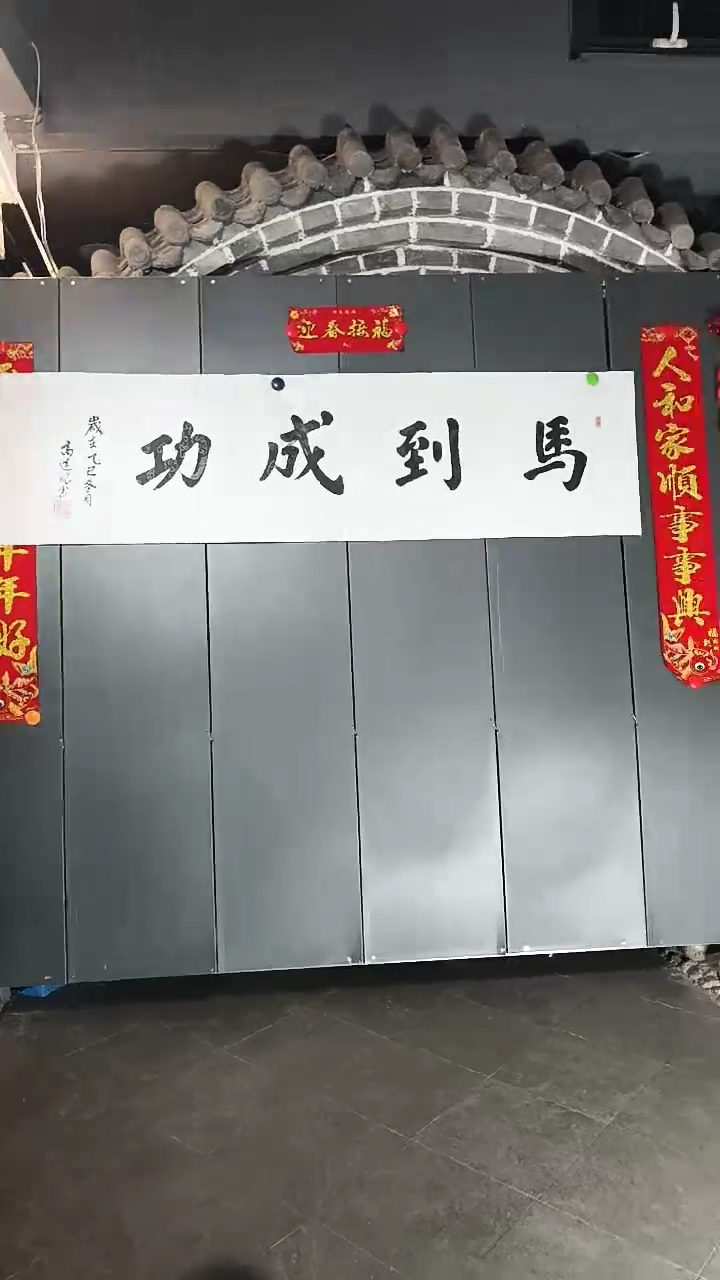 迎春接福
人和家順事事興
馬到成功
歲在乙巳冬月
年年好